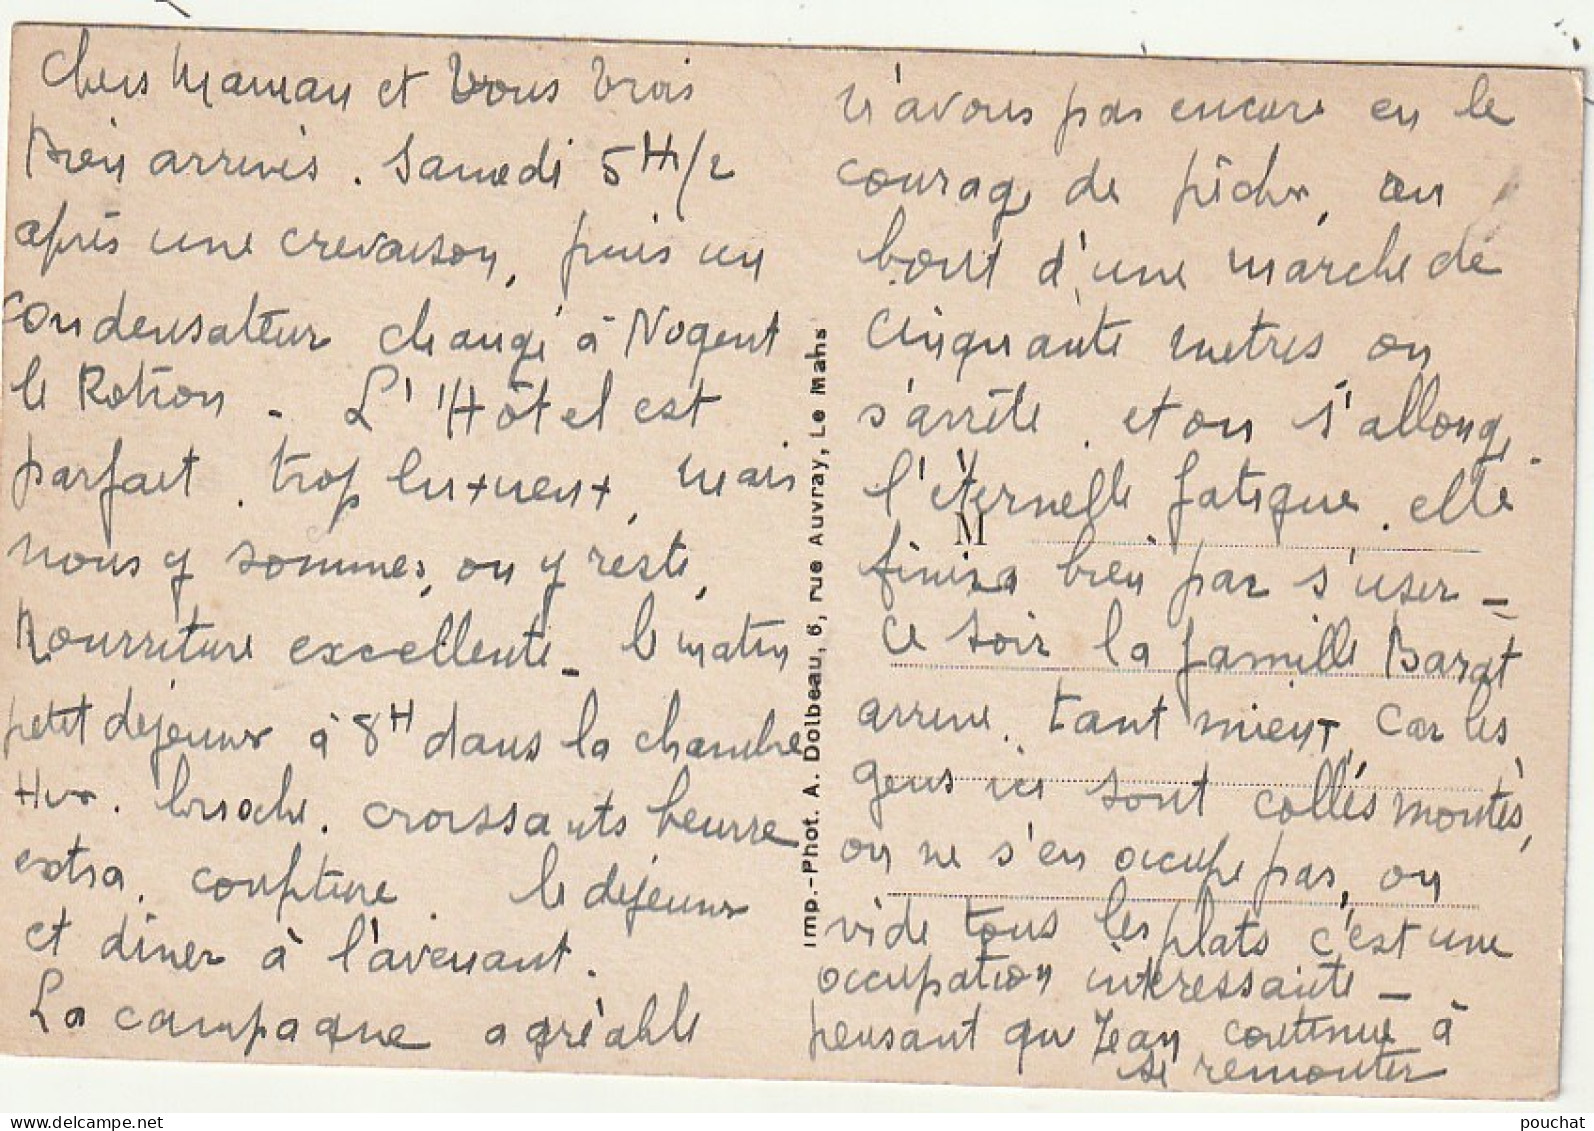 Chers Maman et vous trois
Bien arrivés. Samedi 5H 1/2
après une crevaison, puis un
condensateur changé à Nogent
le Rotrou - L'Hôtel est
parfait. trop luxueux, mais
nous y sommes, on y reste,
Nourriture excellente - le matin
petit dejeuner à 8H dans la chambre
brioche. croissants beurre
extra. confiture. le dejeuner
et diner à l'avenant.
La campagne agréable
n'avons pas encore eu le
courage de pêcher, au
bout d'une marche de
cinquante metres on
s'arrête. et on s'allonge.
l'éternelle fatigue. elle
finira bien par s'user -
ce soir la famille Barat
arrive. tant mieux, car les
gens ici sont collés montés,
on ne s'en occupe pas, on
vide tous les plats c'est une
occupation interessante -
pensant que Jean continue à
se remonter
M
Imp.-Phot. A. Dolbeau, 6, rue Auvray, Le Mans
pouchat